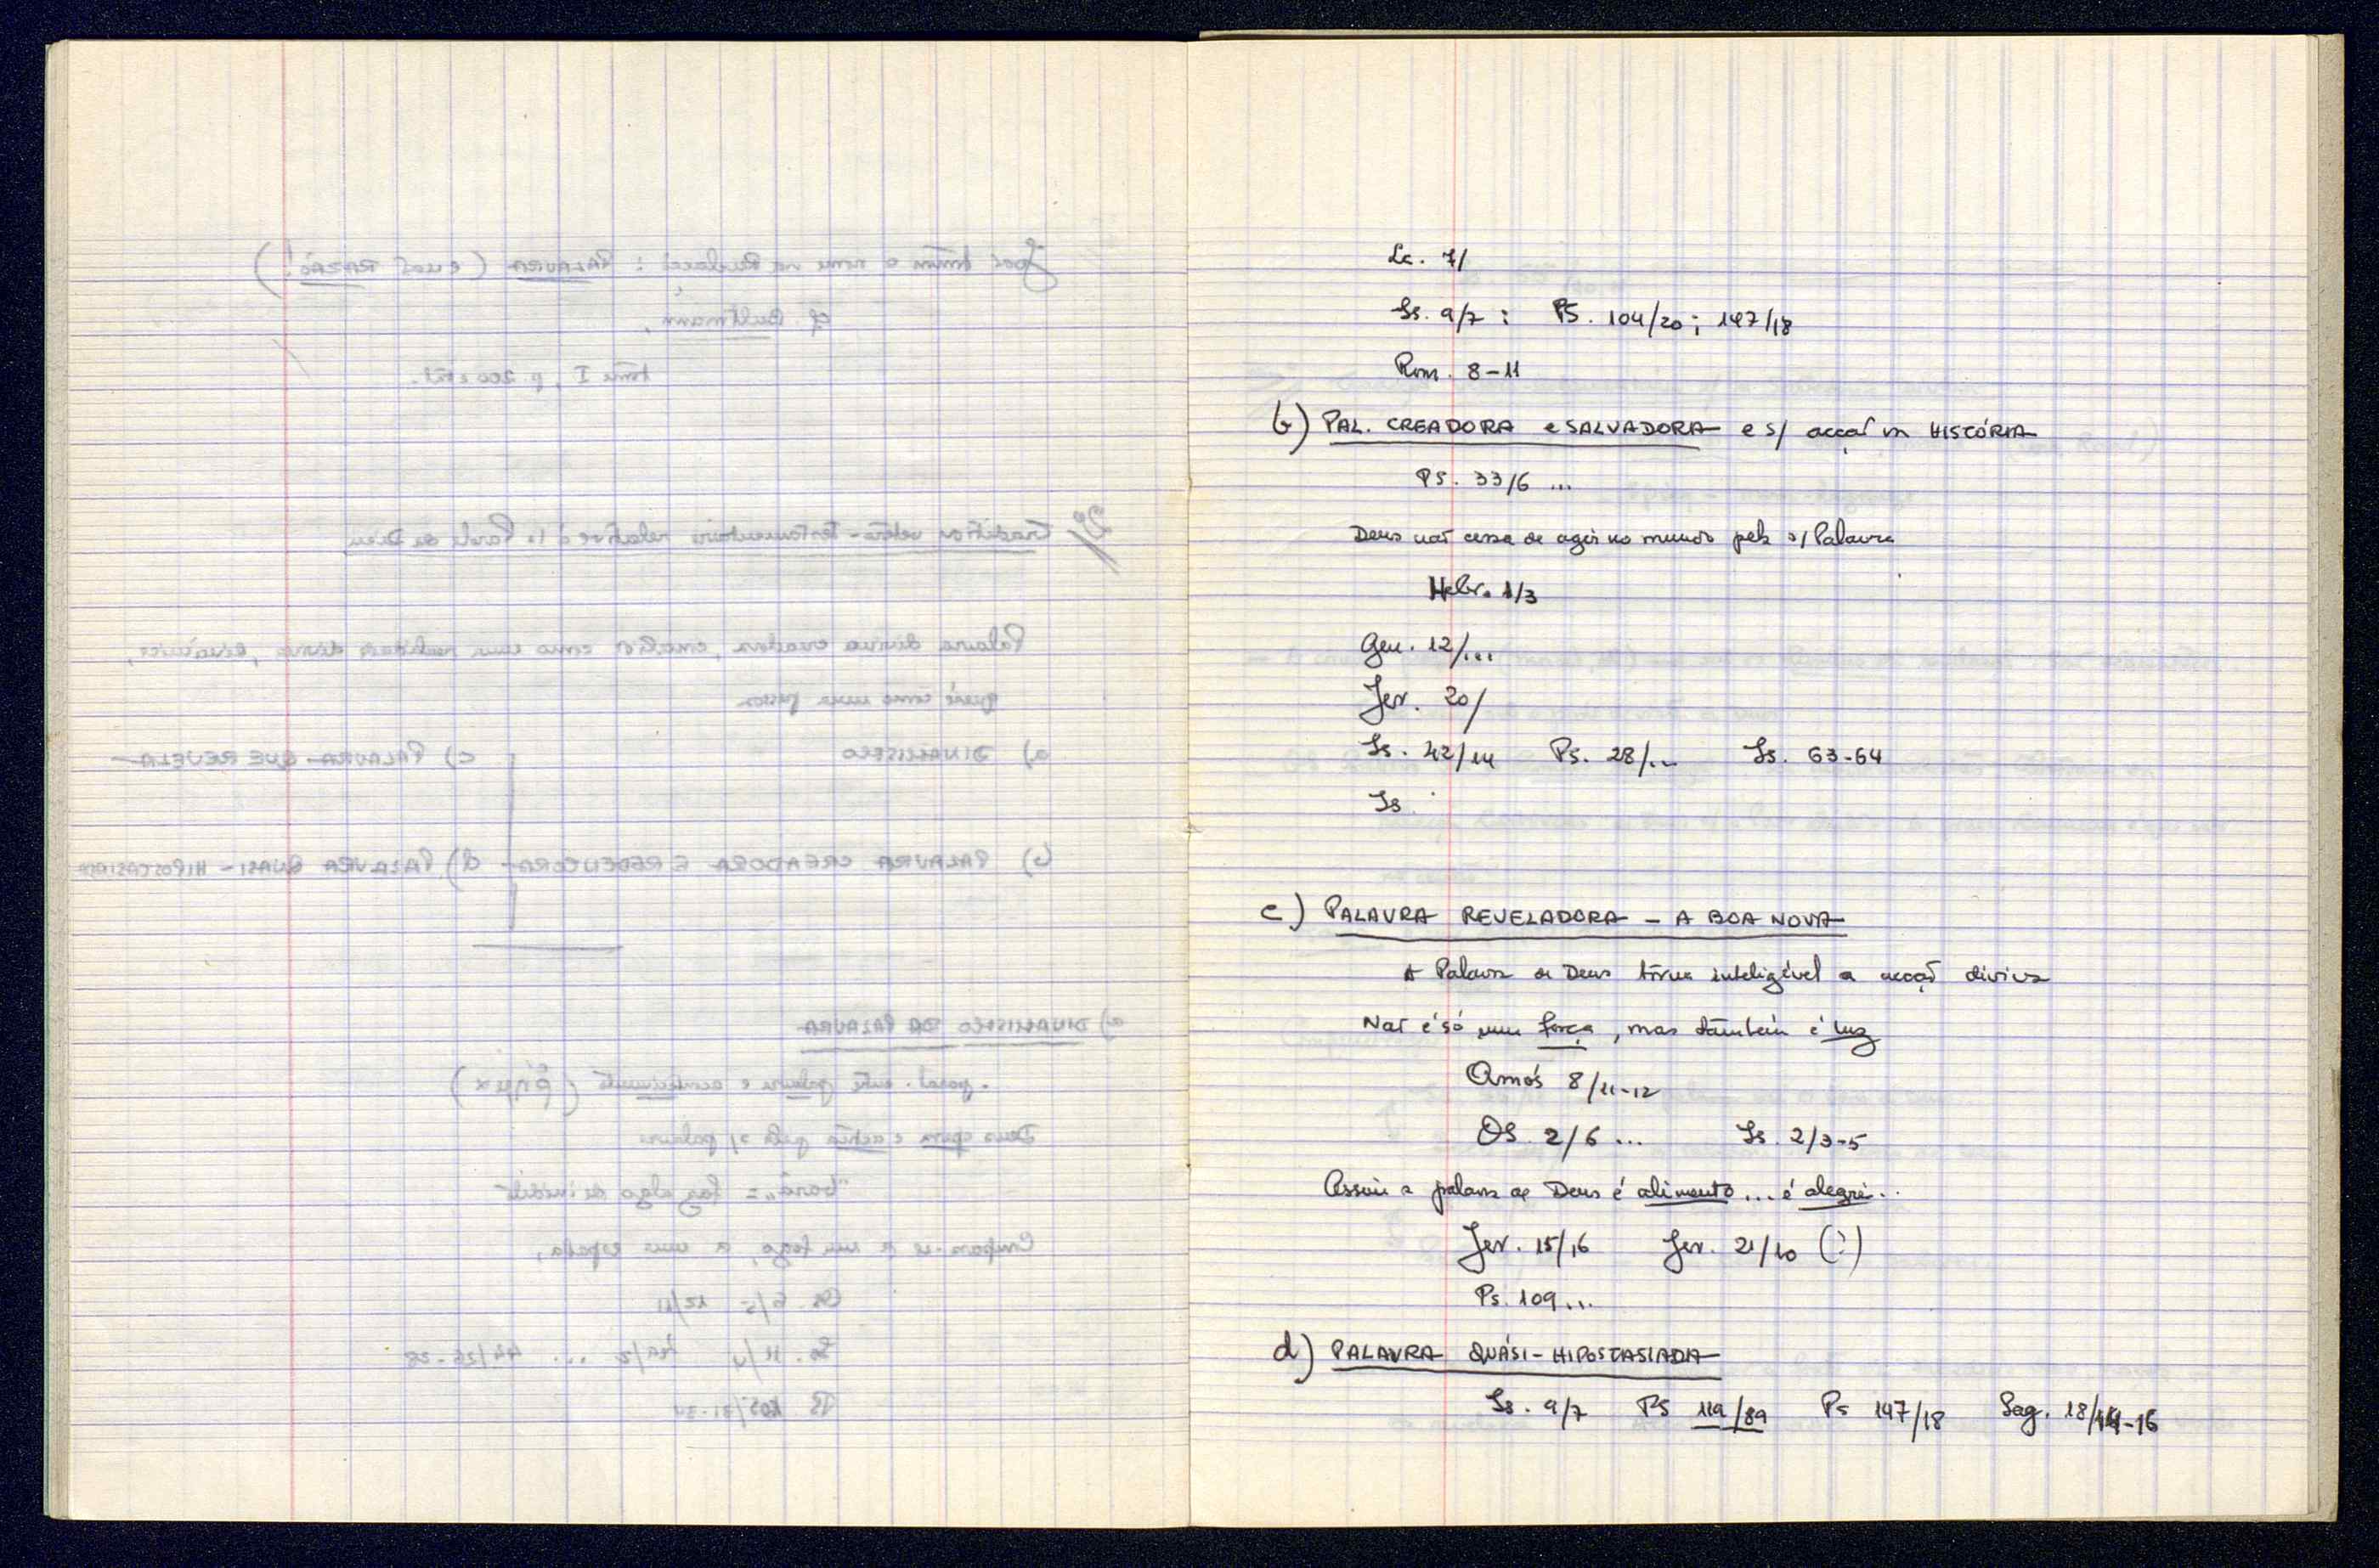 Lc. 7/
Is. 9/7 ; Ps. 104/20 ; 147/18
Rom. 8-11
b) PAL. CREADORA e SALVADORA e s/ acção na HISTÓRIA
Ps. 33/6 ...
Deus não cessa de agir no mundo pela s/ Palavra
Hebr. 1/3
Gen. 12/...
Jer. 20/
Is. 42/14 Ps. 28/... Is. 63-64
Is.
c) PALAVRA REVELADORA - A BOA NOVA
A Palavra de Deus torna inteligível a acção divina
Não é só uma força, mas também é luz
Amós 8/11-12
Os. 2/6 ... Is. 2/3-5
Assim a palavra de Deus é alimento... é alegria..
Jer. 15/16 Jer. 21/10 (?)
Ps. 109...
d) PALAVRA QUÁSI-HIPOSTASIADA
Is. 9/7 Ps 119/89 Ps 147/18 Sag. 18/14-16